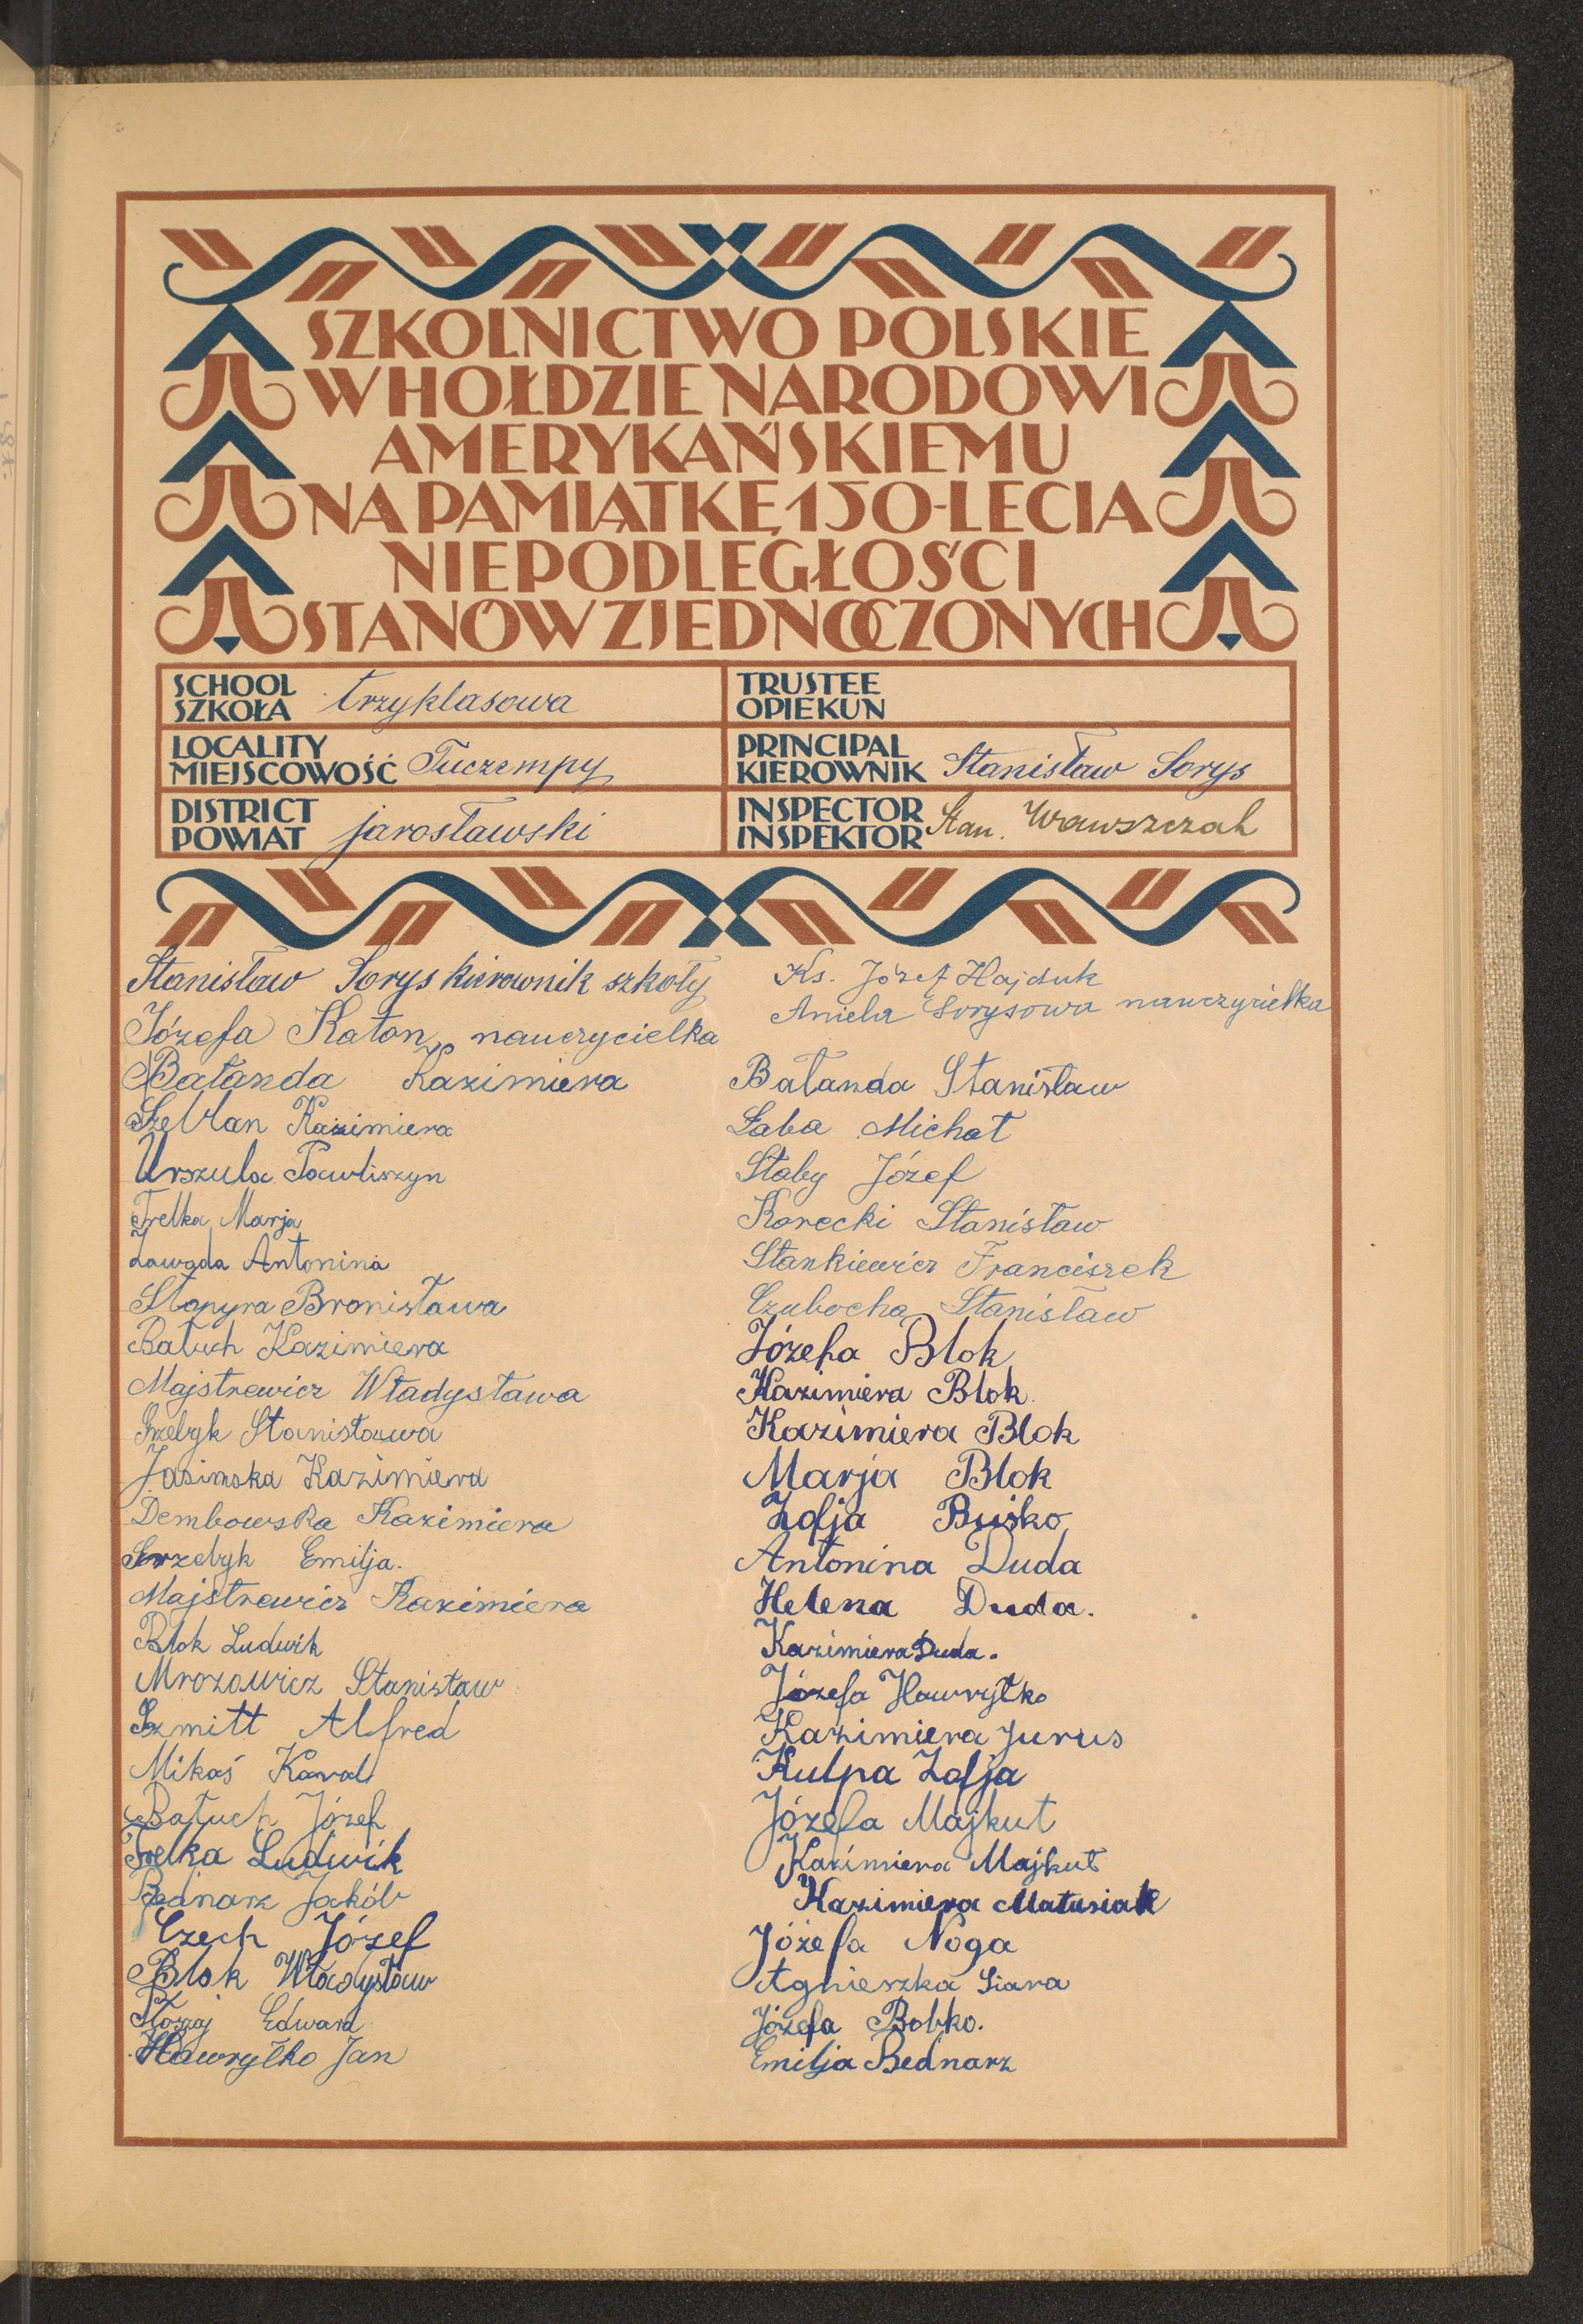 SZKOLNICTWO POLSKIE
W HOŁDZIE NARODOWI
AMERYKAŃSKIEMU
NA PAMIĄTKĘ 150-LECIA
NIEPODLEGŁOŚCI
STANÓW ZJEDNOCZONYCH
SCHOOL
SZKOŁA trzyklasowa
LOCALITY
MIEJSCOWOŚĆ Tuczempy
DISTRICT
POWIAT jarosławski
TRUSTEE
OPIEKUN
PRINCIPAL
KIEROWNIK Stanisław Sorys
INSPECTOR
INSPEKTOR Stan. Wawszczak
Stanisław Sorys kierownik szkoły
Józefa Katon, nauczycielka
Bałanda Kazimiera
Kazimiera
Urszula Pawliszyn
Trelka Marja
Zawada Antonina
Stopyra Bronisława
Batuch Kazimiera
Majstrewicz Władysława
Stanisława
Jasinska Kazimiera
Dembowska Kazimiera
Emilja.
Majstrewicz Kazimiera
Blok Ludwik
Mrozowicz Stanisław
Szmitt Alfred
Mikaś Karol
Batuch Józef
Trelka Ludwik
Bednarz Jakób
Czech Józef
Blok Władysław
Edward
Hawryłko Jan
Ks. Józef Hajduk
Aniela Sorysowa nauczycielka
Bałanda Stanisław
Łaba Michał
Słaby Józef
Korecki Stanisław
Stankiewicz Franciszek
Czubocha Stanisław
Józefa Blok
Kazimiera Blok.
Kazimiera Blok
Marja Blok
Zofja Buśko
Antonina Duda
Helena Duda.
Kazimiera Duda.
Józefa Hawryłko
Kazimiera Jurus
Kulpa Zofja
Józefa Majkut
Kazimiera Majkut
Kazimiera Matusiak
Józefa Noga
Agnieszka Siara
Józefa Bobko.
Emilja Bednarz